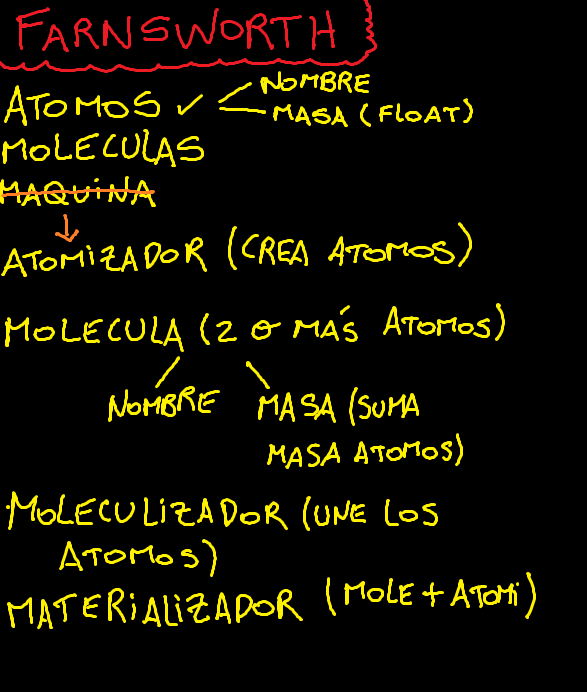 FARNSWORTH
ATOMOS ✓ NOMBRE
MASA (FLOAT)
MOLECULAS
MAQUINA
ATOMIZADOR (CREA ATOMOS)
MOLECULA (2 O MÁS ATOMOS)
NOMBRE MASA (SUMA
MASA ATOMOS)
MOLECULIZADOR (UNE LOS
ATOMOS)
MATERIALIZADOR (MOLE + ATOMI)